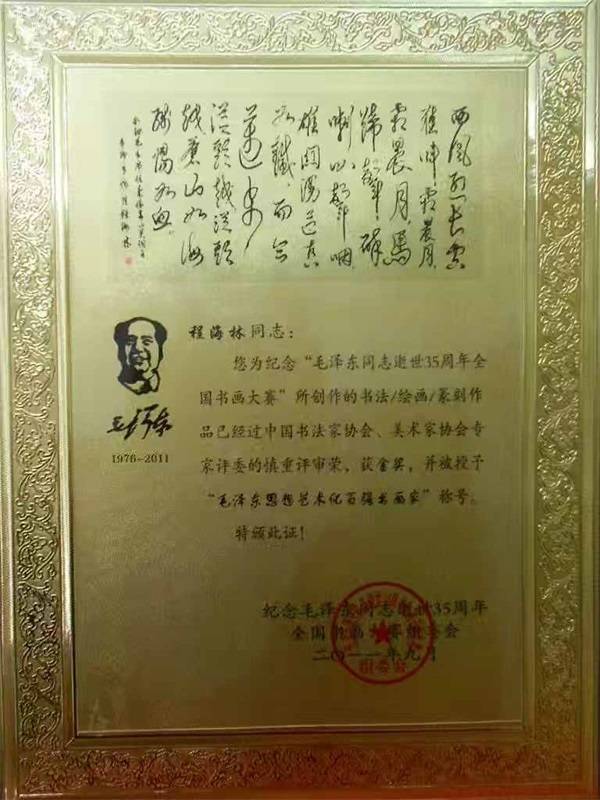 西風烈长空
雁叫霜晨月
霜晨月馬
蹄声碎
喇叭声咽
雄関漫道真
如鐵而今
迈步
從頭越從頭
越蒼山如海
殘陽如血
程海林同志:
您为纪念“毛泽东同志逝世35周年全
国书画大赛”所创作的书法/绘画/篆刻作
品已经过中国书法家协会、美术家协会专
家评委的慎重评审荣、获金奖,并被授予
“毛泽东思想艺术化百强书画家”称号。
特颁此证!
毛泽东
1976-2011
纪念毛泽东同志逝世35周年
全国书画大赛组委会
二〇一一年九月
组委会